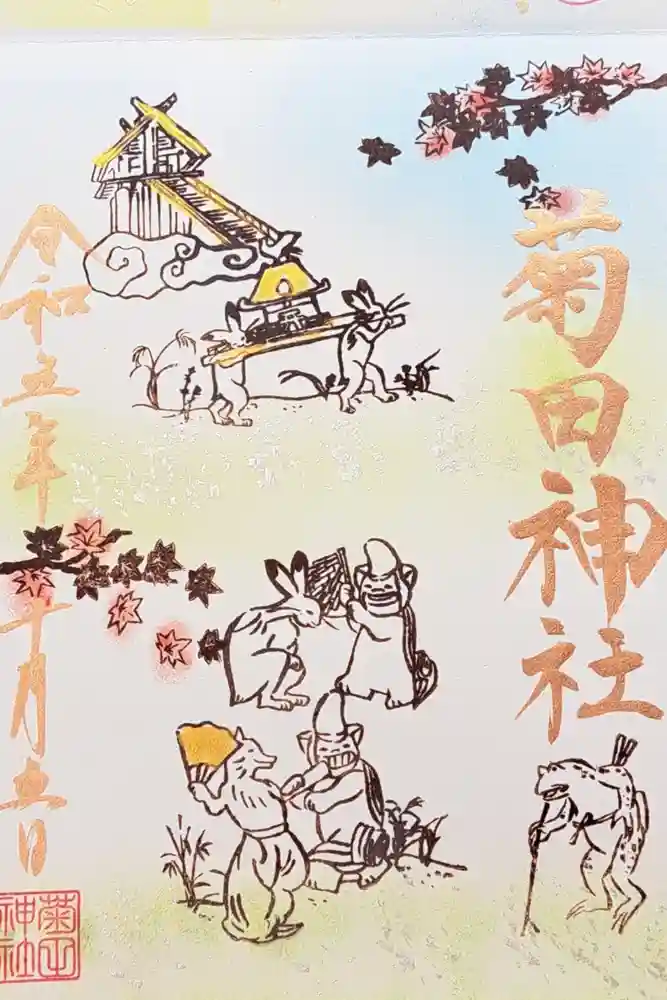 菊田神社
令和五年十月十五日
菊田
神社